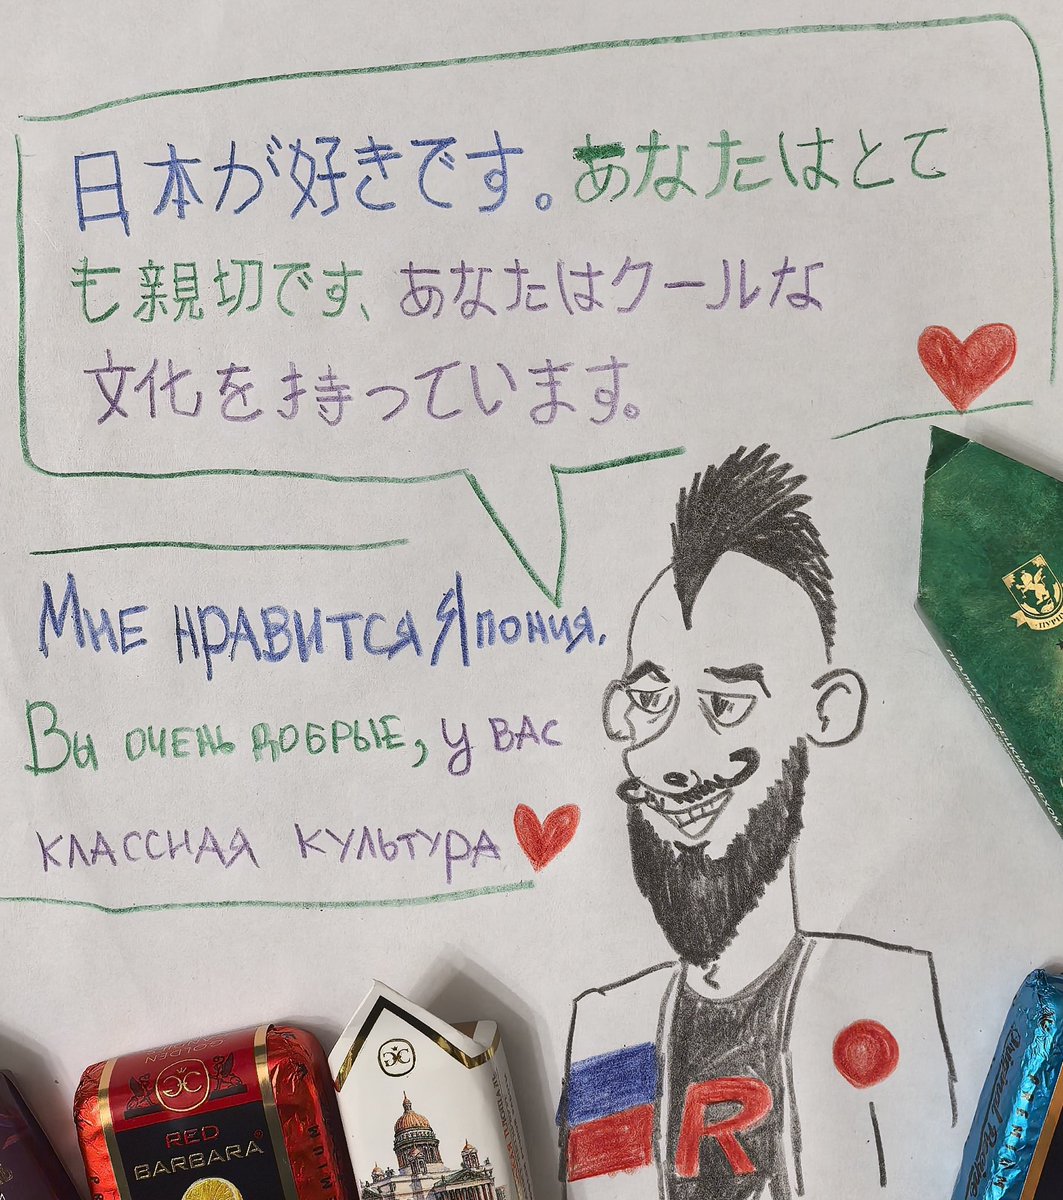 日本が好きです。あなたはとて
も親切です、あなたはクールな
文化を持っています。
Мне нравится Япония.
Вы очень добрые, у вас
классная культура
R
GOLDEN
RED
BARBARA®